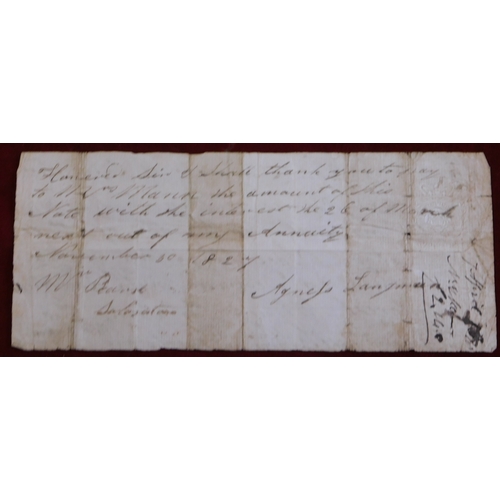 Honored Sir I shall thank you to pay
to Mrs Mann the amount of this
Note with the interest the 26 of March
next out of my Annuity
November 30 1827
Mr
Agness Langman